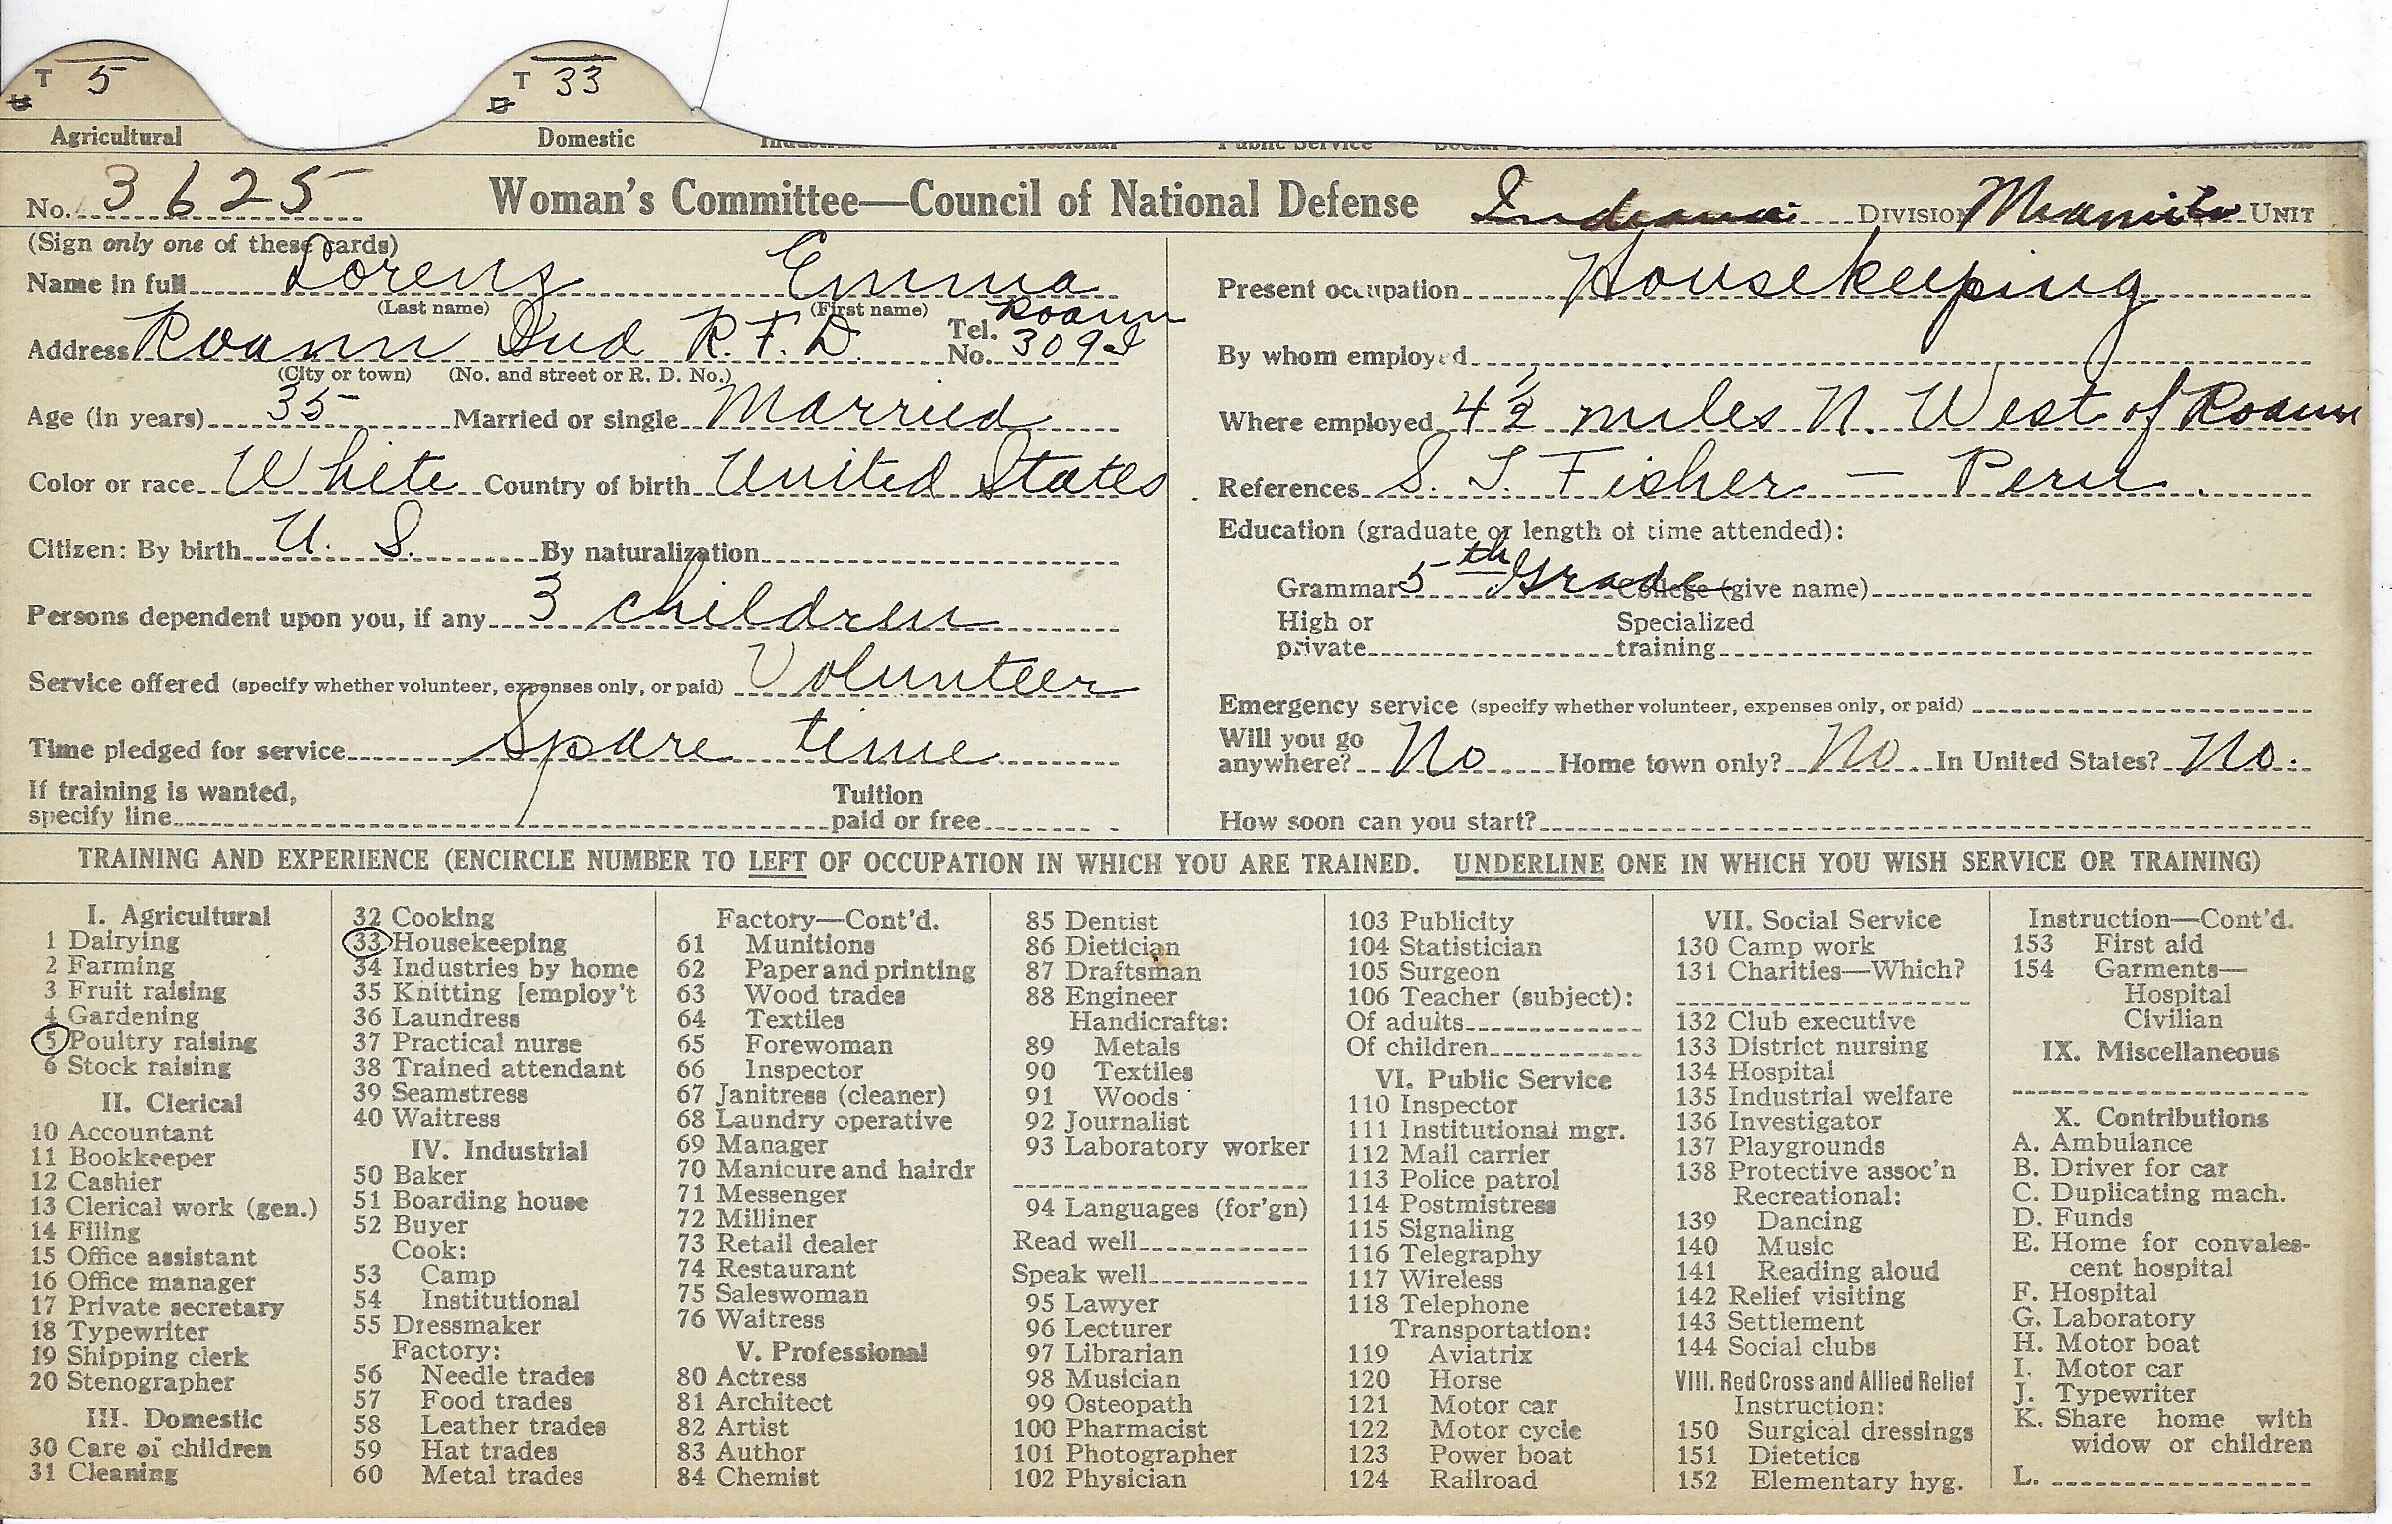 T 5
T 33
Agricultural Domestic
No. 3625 Woman's Committee—Council of National Defense Indiana DIVISION Miami UNIT
(Sign only one of these cards)
Name in full Lorenz Emma
(Last name) (First name)
Address Roann Ind R. F. D. Tel. No. Roann 309
(City or town) (No. and street or R. D. No.)
Age (in years) 35 Married or single Married
Color or race White Country of birth United States
Citizen: By birth U. S. By naturalization
Persons dependent upon you, if any 3 children
Service offered (specify whether volunteer, expenses only, or paid) Volunteer
Time pledged for service Spare time
If training is wanted,
specify line Tuition paid or free
Present occupation Housekeeping
By whom employed
Where employed 4½ miles N. West of Roann
References S. T. Fisher — Peru.
Education (graduate or length of time attended):
Grammar 5th Grade College (give name)
High or private Specialized training
Emergency service (specify whether volunteer, expenses only, or paid)
Will you go anywhere? No Home town only? No In United States? No.
How soon can you start?
TRAINING AND EXPERIENCE (ENCIRCLE NUMBER TO LEFT OF OCCUPATION IN WHICH YOU ARE TRAINED. UNDERLINE ONE IN WHICH YOU WISH SERVICE OR TRAINING)
I. Agricultural
1 Dairying
2 Farming
3 Fruit raising
4 Gardening
5 Poultry raising
6 Stock raising
II. Clerical
10 Accountant
11 Bookkeeper
12 Cashier
13 Clerical work (gen.)
14 Filing
15 Office assistant
16 Office manager
17 Private secretary
18 Typewriter
19 Shipping clerk
20 Stenographer
III. Domestic
30 Care of children
31 Cleaning
32 Cooking
33 Housekeeping
34 Industries by home
35 Knitting [employ't
36 Laundress
37 Practical nurse
38 Trained attendant
39 Seamstress
40 Waitress
IV. Industrial
50 Baker
51 Boarding house
52 Buyer
Cook:
53 Camp
54 Institutional
55 Dressmaker
Factory:
56 Needle trades
57 Food trades
58 Leather trades
59 Hat trades
60 Metal trades
Factory—Cont'd.
61 Munitions
62 Paper and printing
63 Wood trades
64 Textiles
65 Forewoman
66 Inspector
67 Janitress (cleaner)
68 Laundry operative
69 Manager
70 Manicure and hairdr
71 Messenger
72 Milliner
73 Retail dealer
74 Restaurant
75 Saleswoman
76 Waitress
V. Professional
80 Actress
81 Architect
82 Artist
83 Author
84 Chemist
85 Dentist
86 Dietician
87 Draftsman
88 Engineer
Handicrafts:
89 Metals
90 Textiles
91 Woods
92 Journalist
93 Laboratory worker
94 Languages (for'gn)
Read well
Speak well
95 Lawyer
96 Lecturer
97 Librarian
98 Musician
99 Osteopath
100 Pharmacist
101 Photographer
102 Physician
103 Publicity
104 Statistician
105 Surgeon
106 Teacher (subject):
Of adults
Of children
VI. Public Service
110 Inspector
111 Institutional mgr.
112 Mail carrier
113 Police patrol
114 Postmistress
115 Signaling
116 Telegraphy
117 Wireless
118 Telephone
Transportation:
119 Aviatrix
120 Horse
121 Motor car
122 Motor cycle
123 Power boat
124 Railroad
VII. Social Service
130 Camp work
131 Charities—Which?
132 Club executive
133 District nursing
134 Hospital
135 Industrial welfare
136 Investigator
137 Playgrounds
138 Protective assoc'n
Recreational:
139 Dancing
140 Music
141 Reading aloud
142 Relief visiting
143 Settlement
144 Social clubs
VIII. Red Cross and Allied Relief
Instruction:
150 Surgical dressings
151 Dietetics
152 Elementary hyg.
Instruction—Cont'd.
153 First aid
154 Garments—
Hospital
Civilian
IX. Miscellaneous
X. Contributions
A. Ambulance
B. Driver for car
C. Duplicating mach.
D. Funds
E. Home for convales-
cent hospital
F. Hospital
G. Laboratory
H. Motor boat
I. Motor car
J. Typewriter
K. Share home with
widow or children
L.